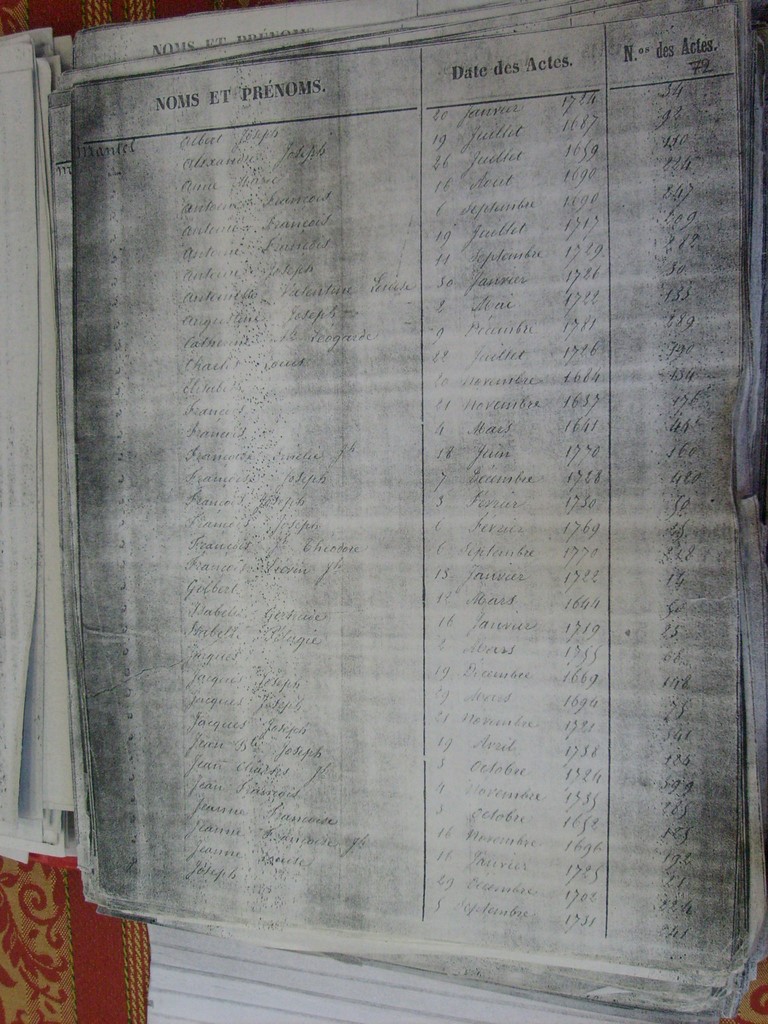 NOMS ET PRÉNOMS.
NOMS ET PRÉNOMS. Date des Actes. N.os des Actes.
72
Mantel Albert Joseph 20 Janvier 1724 34
Alexandre Joseph 19 Juillet 1687 92
Anne Marie 26 Juillet 1659 110
Antoine François 16 Août 1690 224
Antoine François 6 Septembre 1690 247
Antoine François 19 Juillet 1717 209
Antoine Joseph 11 Septembre 1729 282
Antoinette Valentine Louise 30 Janvier 1726 30
Augustine Joseph 2 Mai 1722 135
Catherine Leogarde 9 Décembre 1781 289
Charles Louis 22 Juillet 1726 190
Elisabeth 20 novembre 1664 154
François 21 novembre 1657 176
François 4 Mars 1641
Françoise Amélie Jh 18 Juin 1770 160
François Joseph 7 Décembre 1728 420
François Joseph 3 Février 1730 30
François Joseph 6 Février 1769 25
François Jh Theodore 6 Septembre 1770 228
François Jh 15 Janvier 1722 14
Gilbert 12 Mars 1644 50
Isabelle Gertrude 16 Janvier 1719 25
Isabelle Pélagie 2 Mars 1755 68
Jacques 19 Décembre 1669 148
Jacques Joseph 29 Mars 1694 75
Jacques Joseph 21 Novembre 1721 341
Jacques Joseph 19 Avril 1738 124
Jean Bte Joseph 3 Octobre 1724 399
Jean Charles Jh 4 Novembre 1735 265
Jean François 3 Octobre 1652 123
Jeanne Françoise 16 Novembre 1696 192
Jeanne Françoise Jh 16 Janvier 1725 21
Jeanne Louise 29 Décembre 1702 224
Joseph 5 Septembre 1731 241